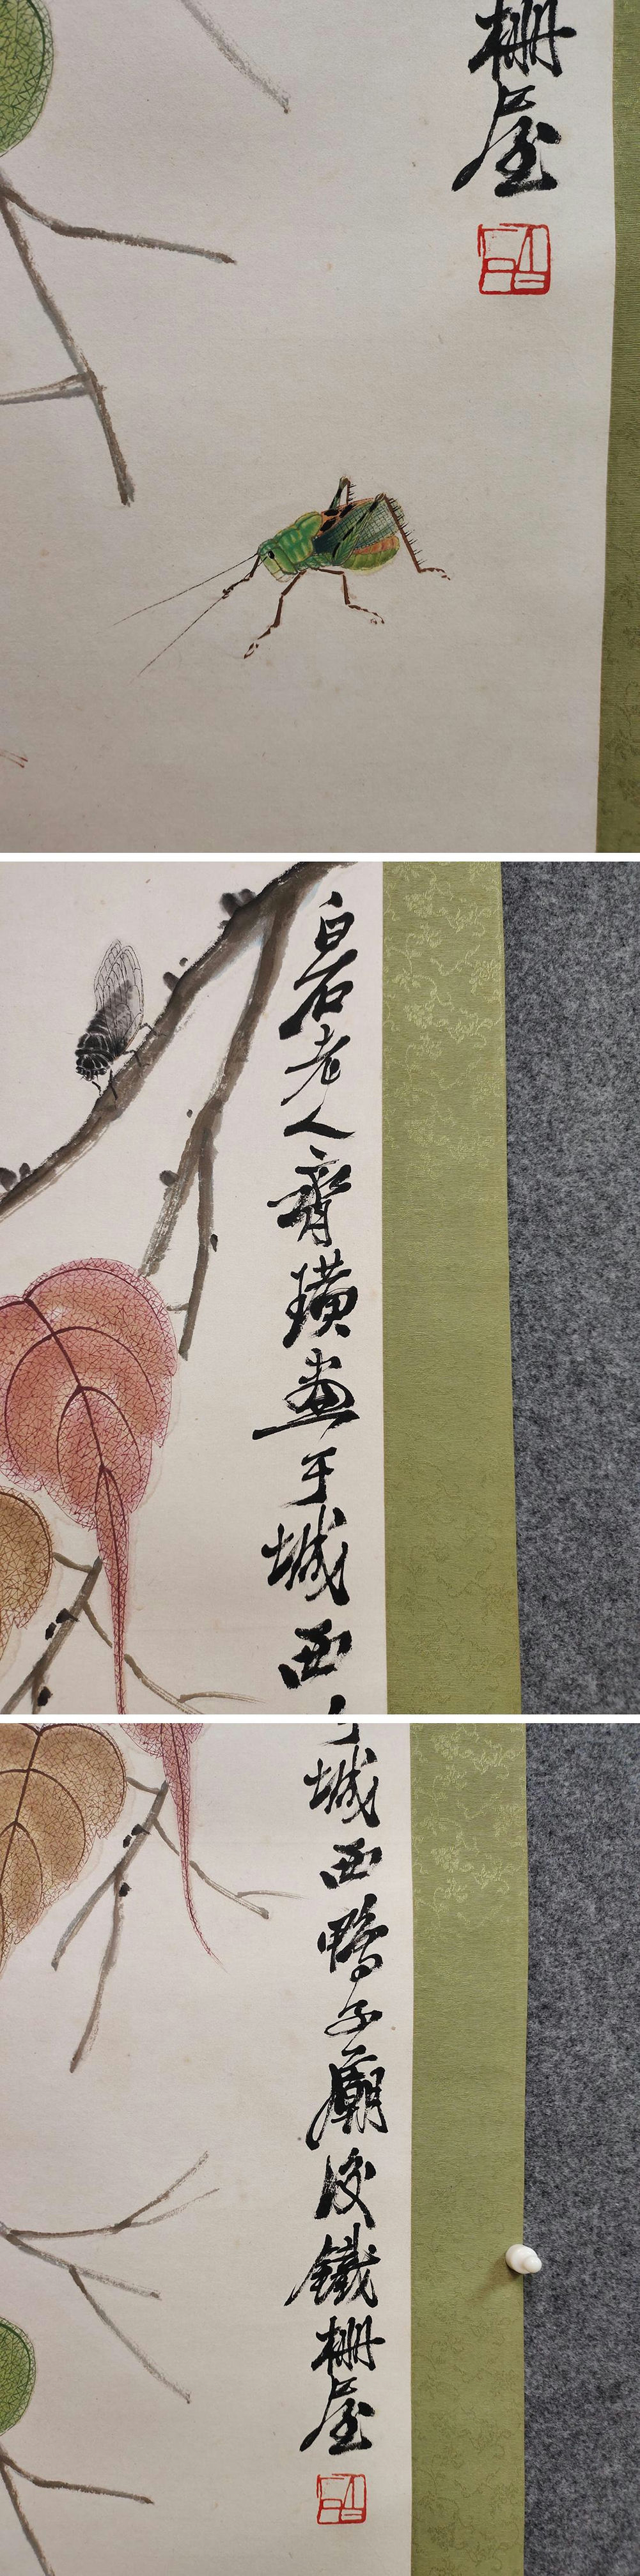 栅屋
白石老人齊璜畫于城西
城西鴨子廟後鐵栅屋